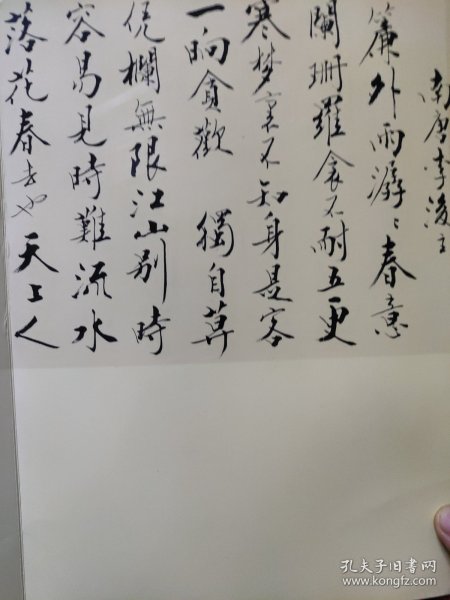 南唐李後主
簾外雨潺〻春意
闌珊羅衾不耐五更
寒梦裏不知身是客
一晌貪歡 獨自莫
凭欄無限江山別時
容易見時難流水
落花春去也天上人
孔夫子旧书网
www.kongfz.com